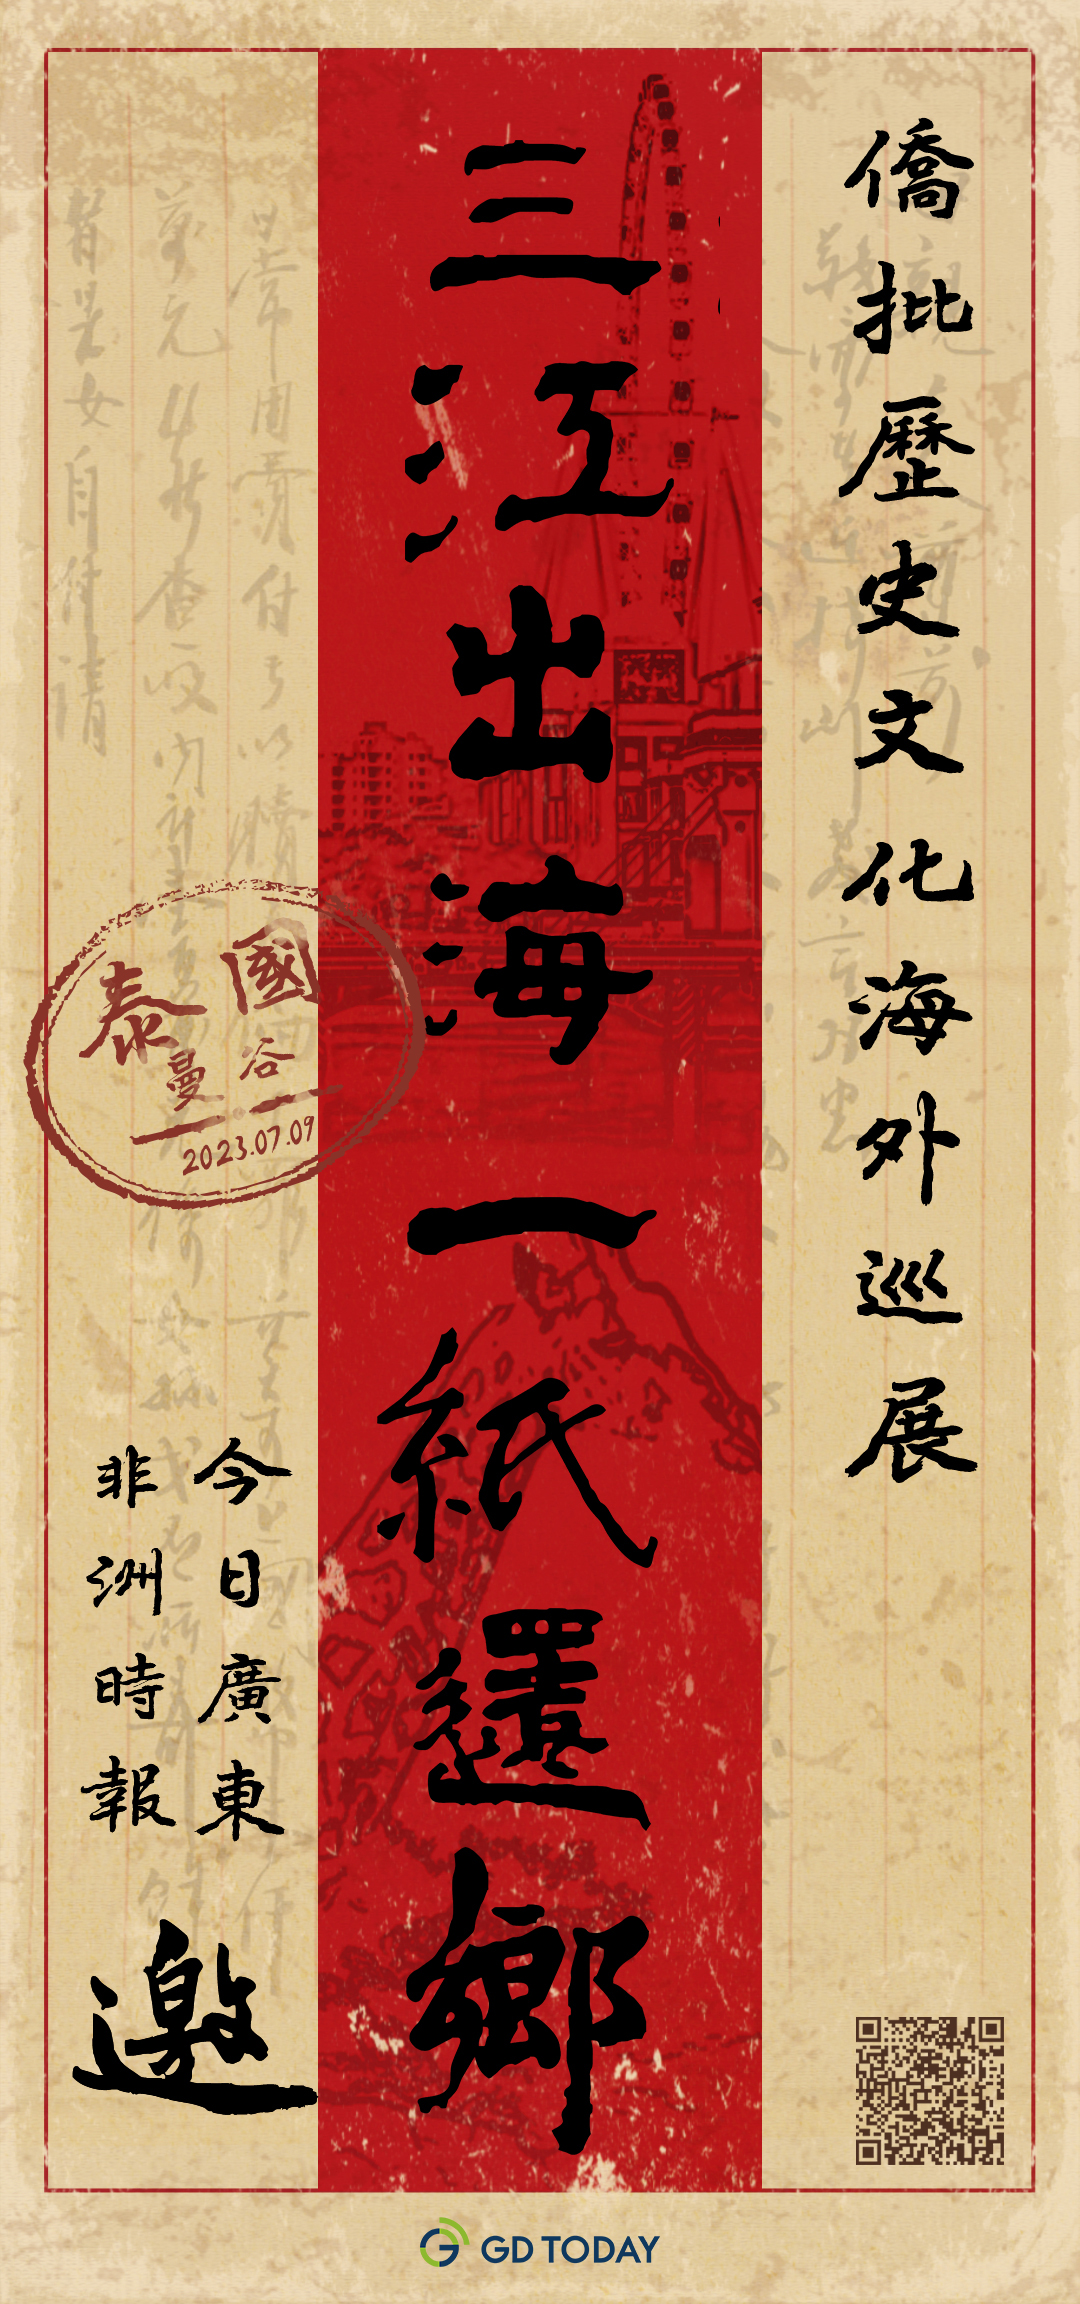 僑批歷史文化海外巡展
三江出海一紙還鄉
今日廣東
非洲時報
邀
泰國
曼谷
2023.07.09
GD TODAY